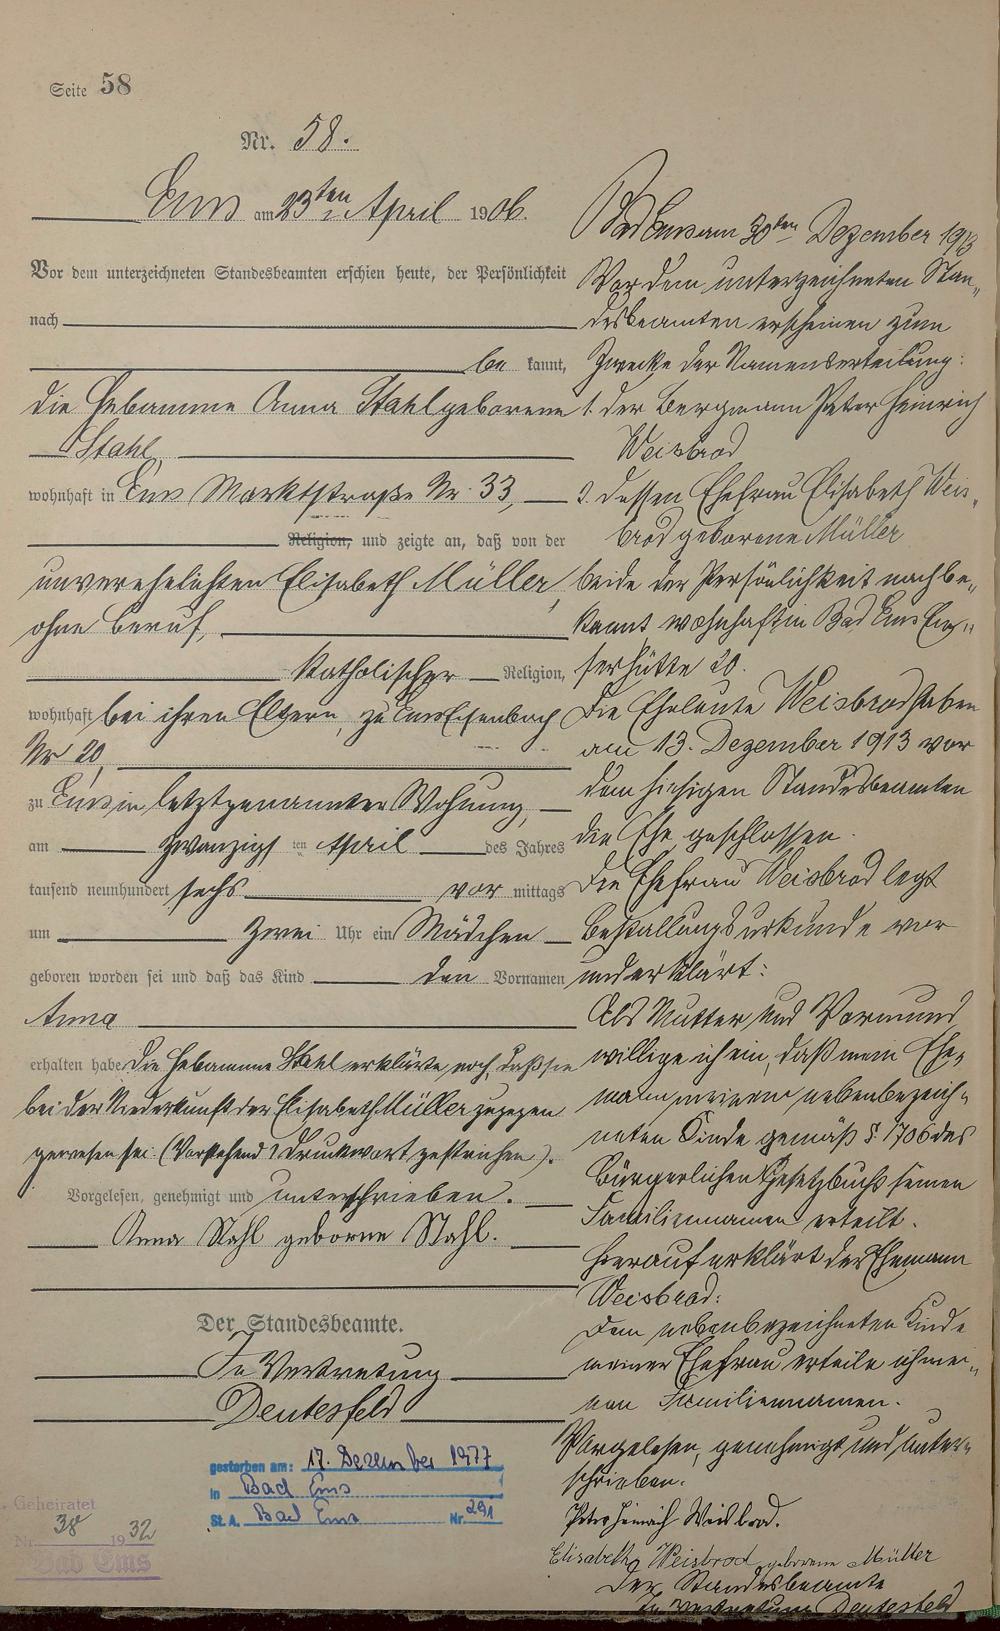 Seite 58
Nr. 58.
Ems am 23ten April 1906.
Vor dem unterzeichneten Standesbeamten erschien heute, der Persönlichkeit
nach
be kannt,
die Hebamme Anna Stahl geborene
Stahl,
wohnhaft in Ems Marktstraße Nr. 33,
Religion, und zeigte an, daß von der
unverehelichten Elisabeth Müller,
ohne Beruf,
katholischer Religion,
wohnhaft bei ihren Eltern, zu Ems Eisenbach
Nr 20,
zu Ems in letztgenannter Wohnung,
am zwanzigsten April des Jahres
tausend neunhundert sechs vor mittags
um zwei Uhr ein Mädchen
geboren worden sei und daß das Kind den Vornamen
Anna
erhalten habe. Die Hebamme Stahl erklärte noch, daß sie
bei der Niederkunft der Elisabeth Müller zugegen
gewesen sei. (Vorstehend 1 Druckwort gestrichen).
Vorgelesen, genehmigt und unterschrieben.
Anna Stahl geborne Stahl.
Der Standesbeamte.
In Vertretung
Deutesfeld
gestorben am: 17. Dezember 1977
in Bad Ems
St. A. Bad Ems Nr. 291
Geheiratet
Nr. 38 1932
Bad Ems
Bad Ems am 30ten Dezember 1913
Vor dem unterzeichneten Stan„
desbeamten erscheinen zum
Zwecke der Namenserteilung:
1. der Bergmann Peter Heinrich
Weisbrod
2. dessen Ehefrau Elisabeth Weis„
brod geborene Müller
beide der Persönlichkeit nach be„
kannt, wohnhaft in Bad Ems Em„
serhütte 20.
Die Eheleute Weisbrod haben
am 13. Dezember 1913 vor
dem hiesigen Standesbeamten
die Ehe geschlossen.
Die Ehefrau Weisbrod legt
Bestallungsurkunde vor
und erklärt:
Als Mutter und Vormund
willige ich ein, daß mein Ehe„
mann meinem nebenbezeich„
neten Kinde gemäß § 1706 des
Bürgerlichen Gesetzbuchs seinen
Familiennamen erteilt.
Hierauf erklärt der Ehemann
Weisbrod:
Dem nebenbezeichneten Kinde
meiner Ehefrau erteile ich mei„
nen Familiennamen.
Vorgelesen, genehmigt und unter„
schrieben.
Peter Heinrich Weisbrod.
Elisabeth Weisbrod geborene Müller
Der Standesbeamte
In Vertretung Deutesfeld